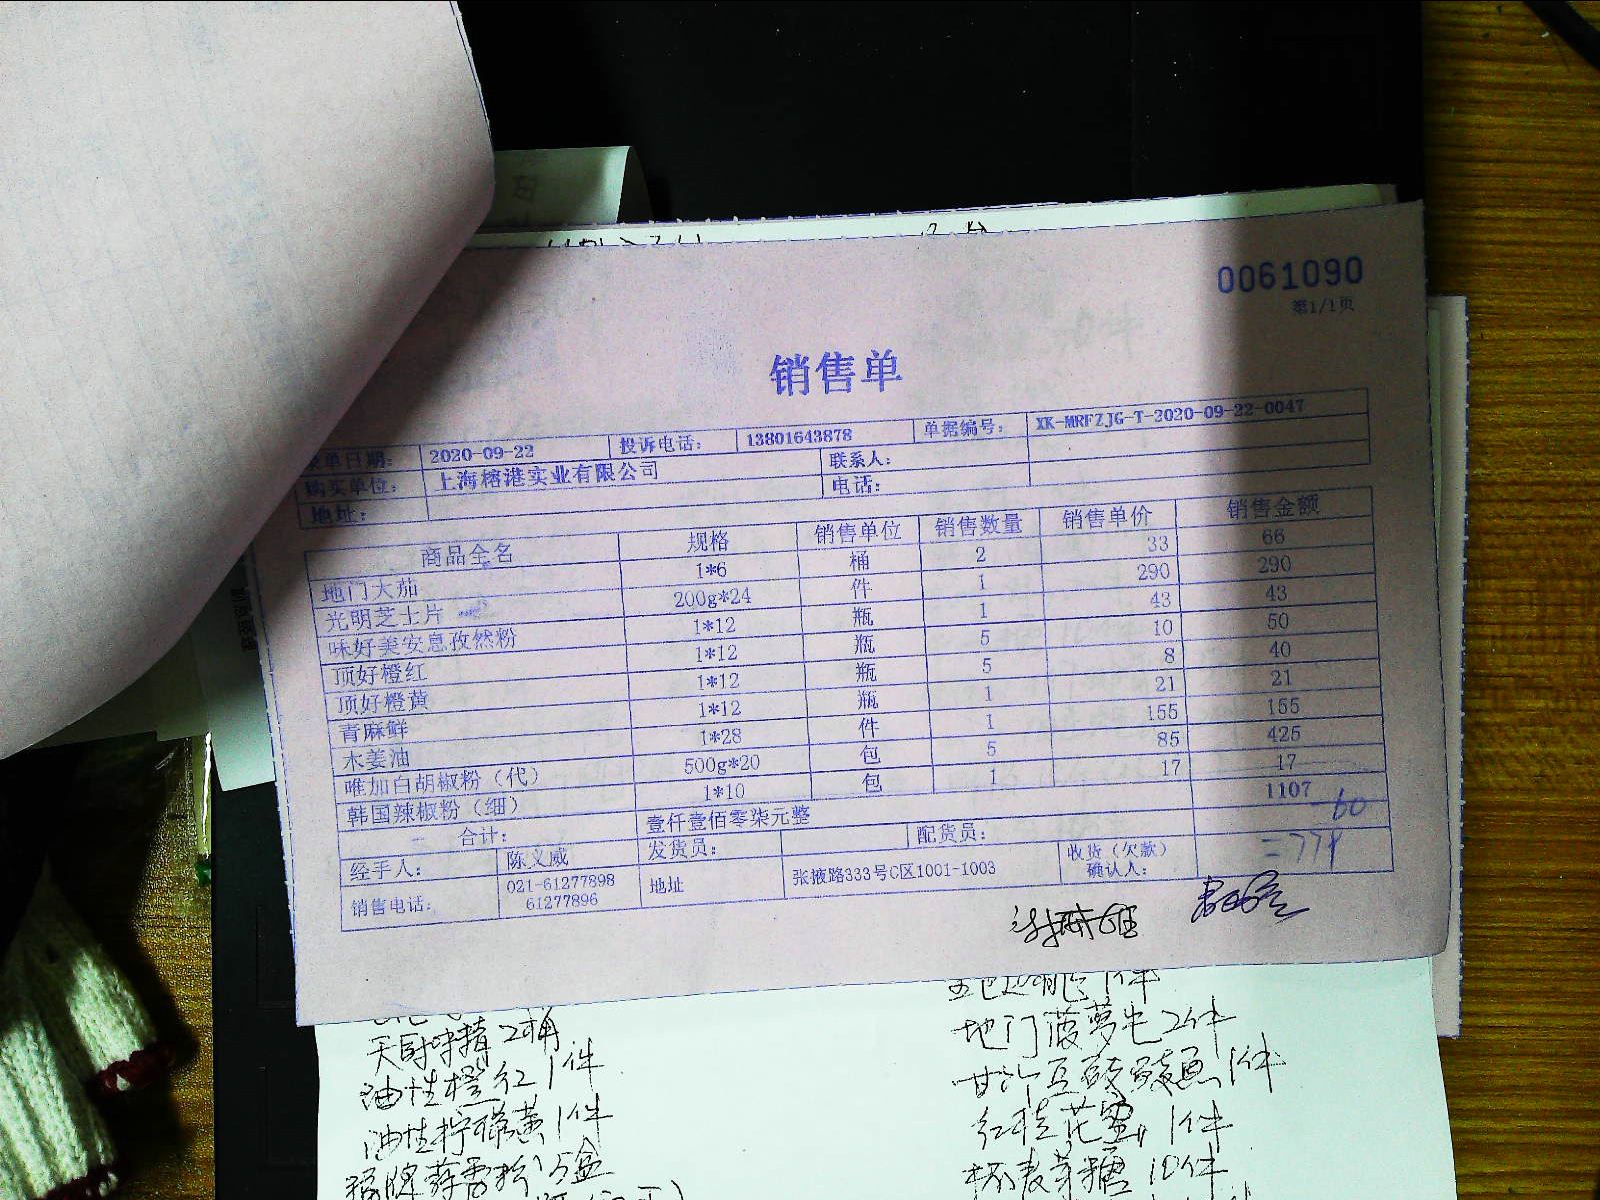 0061090
第1/1页
销售单
录单日期: 2020-09-22 投诉电话: 13801643878 单据编号: XK-MRFZJG-T-2020-09-22-0047
购买单位: 上海榕港实业有限公司 联系人:
地址: 电话:
商品全名 规格 销售单位 销售数量 销售单价 销售金额
地门大茄 1*6 桶 2 33 66
光明芝士片 200g*24 件 1 290 290
味好美安息孜然粉 1*12 瓶 1 43 43
顶好橙红 1*12 瓶 5 10 50
顶好橙黄 1*12 瓶 5 8 40
青麻鲜 1*12 瓶 1 21 21
木姜油 1*28 件 1 155 155
唯加白胡椒粉（代） 500g*20 包 5 85 425
韩国辣椒粉（细） 1*10 包 1 17 17
合计: 壹仟壹佰零柒元整 1107
-60
经手人: 陈义威 发货员: 配货员: 收货（欠款）确认人:
销售电话: 021-61277898 61277896 地址 张掖路333号C区1001-1003
天厨味精 2桶
油性橙红 1件
油性柠檬黄 1件
地门菠萝 2件
甘竹豆豉鲮鱼 1件
红桂花蜜 1件
麦芽糖 10件